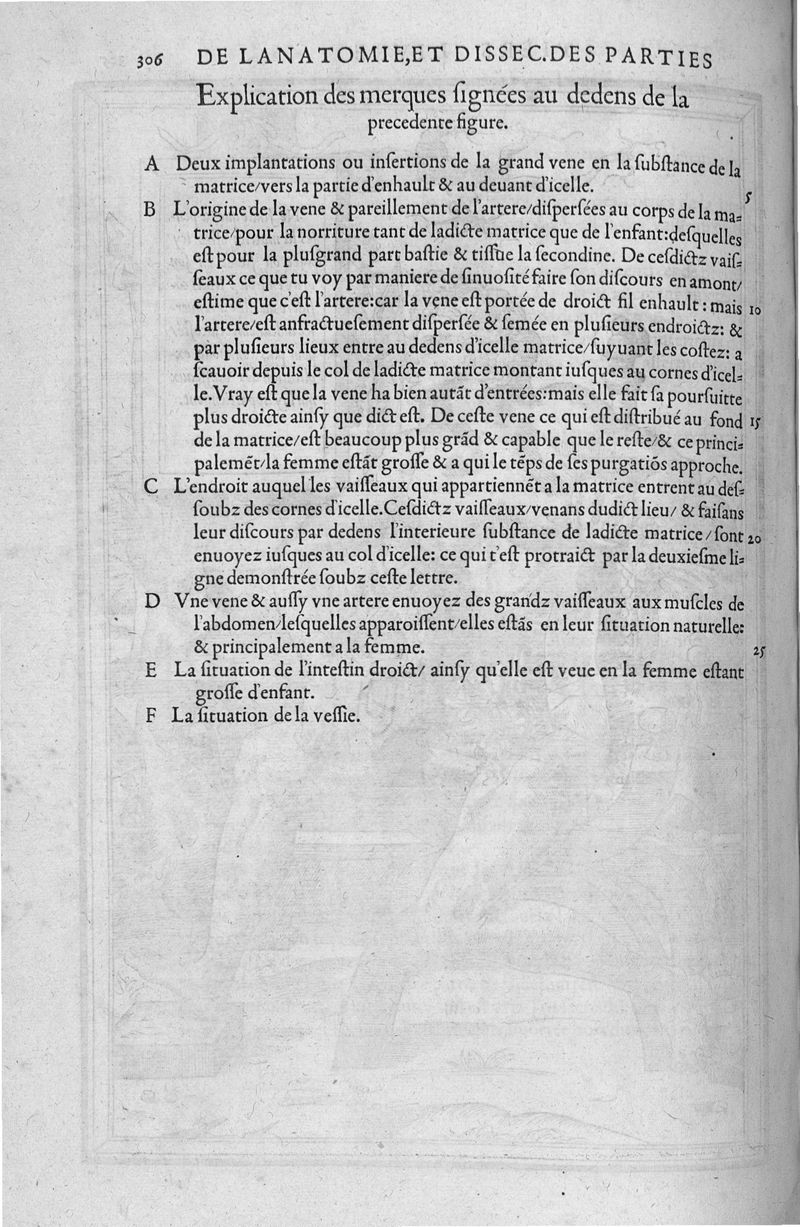 306 DE LANATOMIE,ET DISSEC.DES PARTIES
Explication des merques ſignées au dedens de la
precedente figure.
A Deux implantations ou inſertions de la grand vene en la ſubſtance de la
matrice/vers la partie d'enhault & au deuant d'icelle. 5
B L'origine de la vene & pareillement de l'artere/diſperſées au corps de la ma-
trice/pour la norriture tant de ladicte matrice que de l'enfant:deſquelles
eſt pour la pluſgrand part baſtie & tiſſue la ſecondine. De ceſdictz vaiſ-
ſeaux ce que tu voy par maniere de ſinuoſité faire ſon diſcours en amont/
eſtime que c'eſt l'artere:car la vene eſt portée de droict fil enhault : mais 10
l'artere/eſt anfractueſement diſperſée & ſemée en pluſieurs endroictz: &
par pluſieurs lieux entre au dedens d'icelle matrice/ſuyuant les coſtez: a
ſcauoir depuis le col de ladicte matrice montant iuſques au cornes d'icel-
le.Vray eſt que la vene ha bien autãt d'entrées:mais elle fait ſa pourſuitte
plus droicte ainſy que dict eſt. De ceſte vene ce qui eſt diſtribué au fond 15
de la matrice/eſt beaucoup plus grãd & capable que le reſte/& ce princi-
palemẽt/la femme eſtãt groſſe & a qui le tẽps de ſes purgatiõs approche.
C L'endroit auquel les vaiſſeaux qui appartiennẽt a la matrice entrent au deſ-
ſoubz des cornes d'icelle.Ceſdictz vaiſſeaux/venans dudict lieu/ & faiſans
leur diſcours par dedens l'interieure ſubſtance de ladicte matrice / ſont 20
enuoyez iuſques au col d'icelle: ce qui t'eſt protraict par la deuxieſme li-
gne demonſtrée ſoubz ceſte lettre.
D Vne vene & auſſy vne artere enuoyez des grandz vaiſſeaux aux muſcles de
l'abdomen/leſquelles apparoiſſent/elles eſtãs en leur ſituation naturelle:
& principalement a la femme. 25
E La ſituation de l'inteſtin droict/ ainſy qu'elle eſt veue en la femme eſtant
groſſe d'enfant.
F La ſituation de la veſſie.